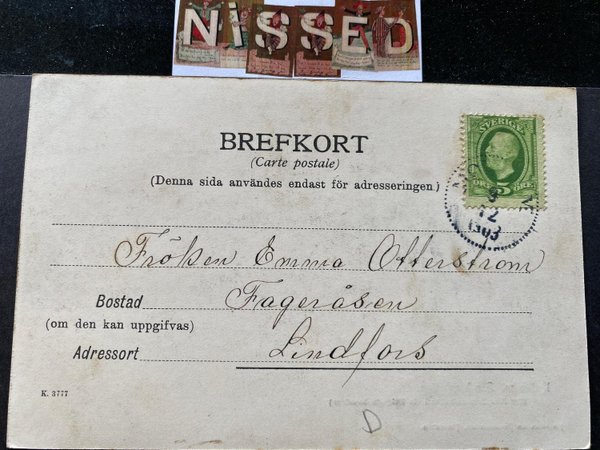 NISSED
BREFKORT
(Carte postale)
(Denna sida användes endast för adresseringen.)
SVERIGE
ÖRE 5 ÖRE
8
12
1903
Fröken Emma Otterstrom
Bostad Fageråsen
(om den kan uppgifvas)
Adressort Lindfors
K. 3777
D